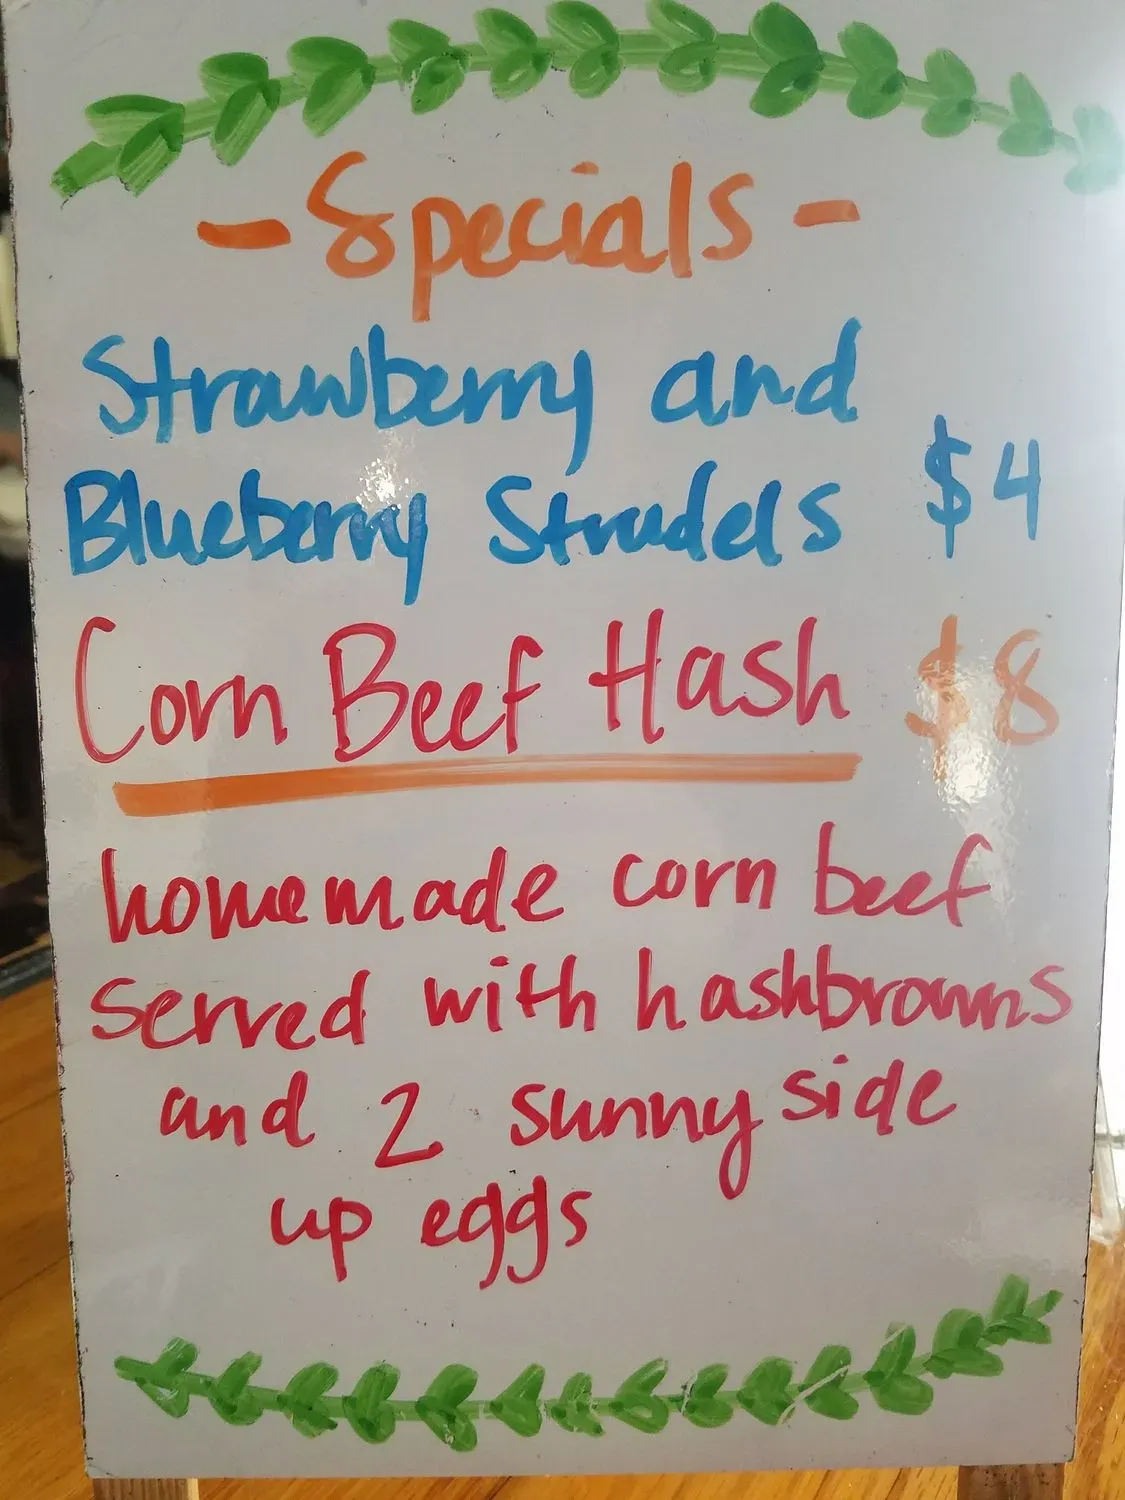 - Specials -
Strawberry and
Blueberry Strudels $4
Corn Beef Hash $8
homemade corn beef
served with hashbrowns
and 2 sunny side
up eggs